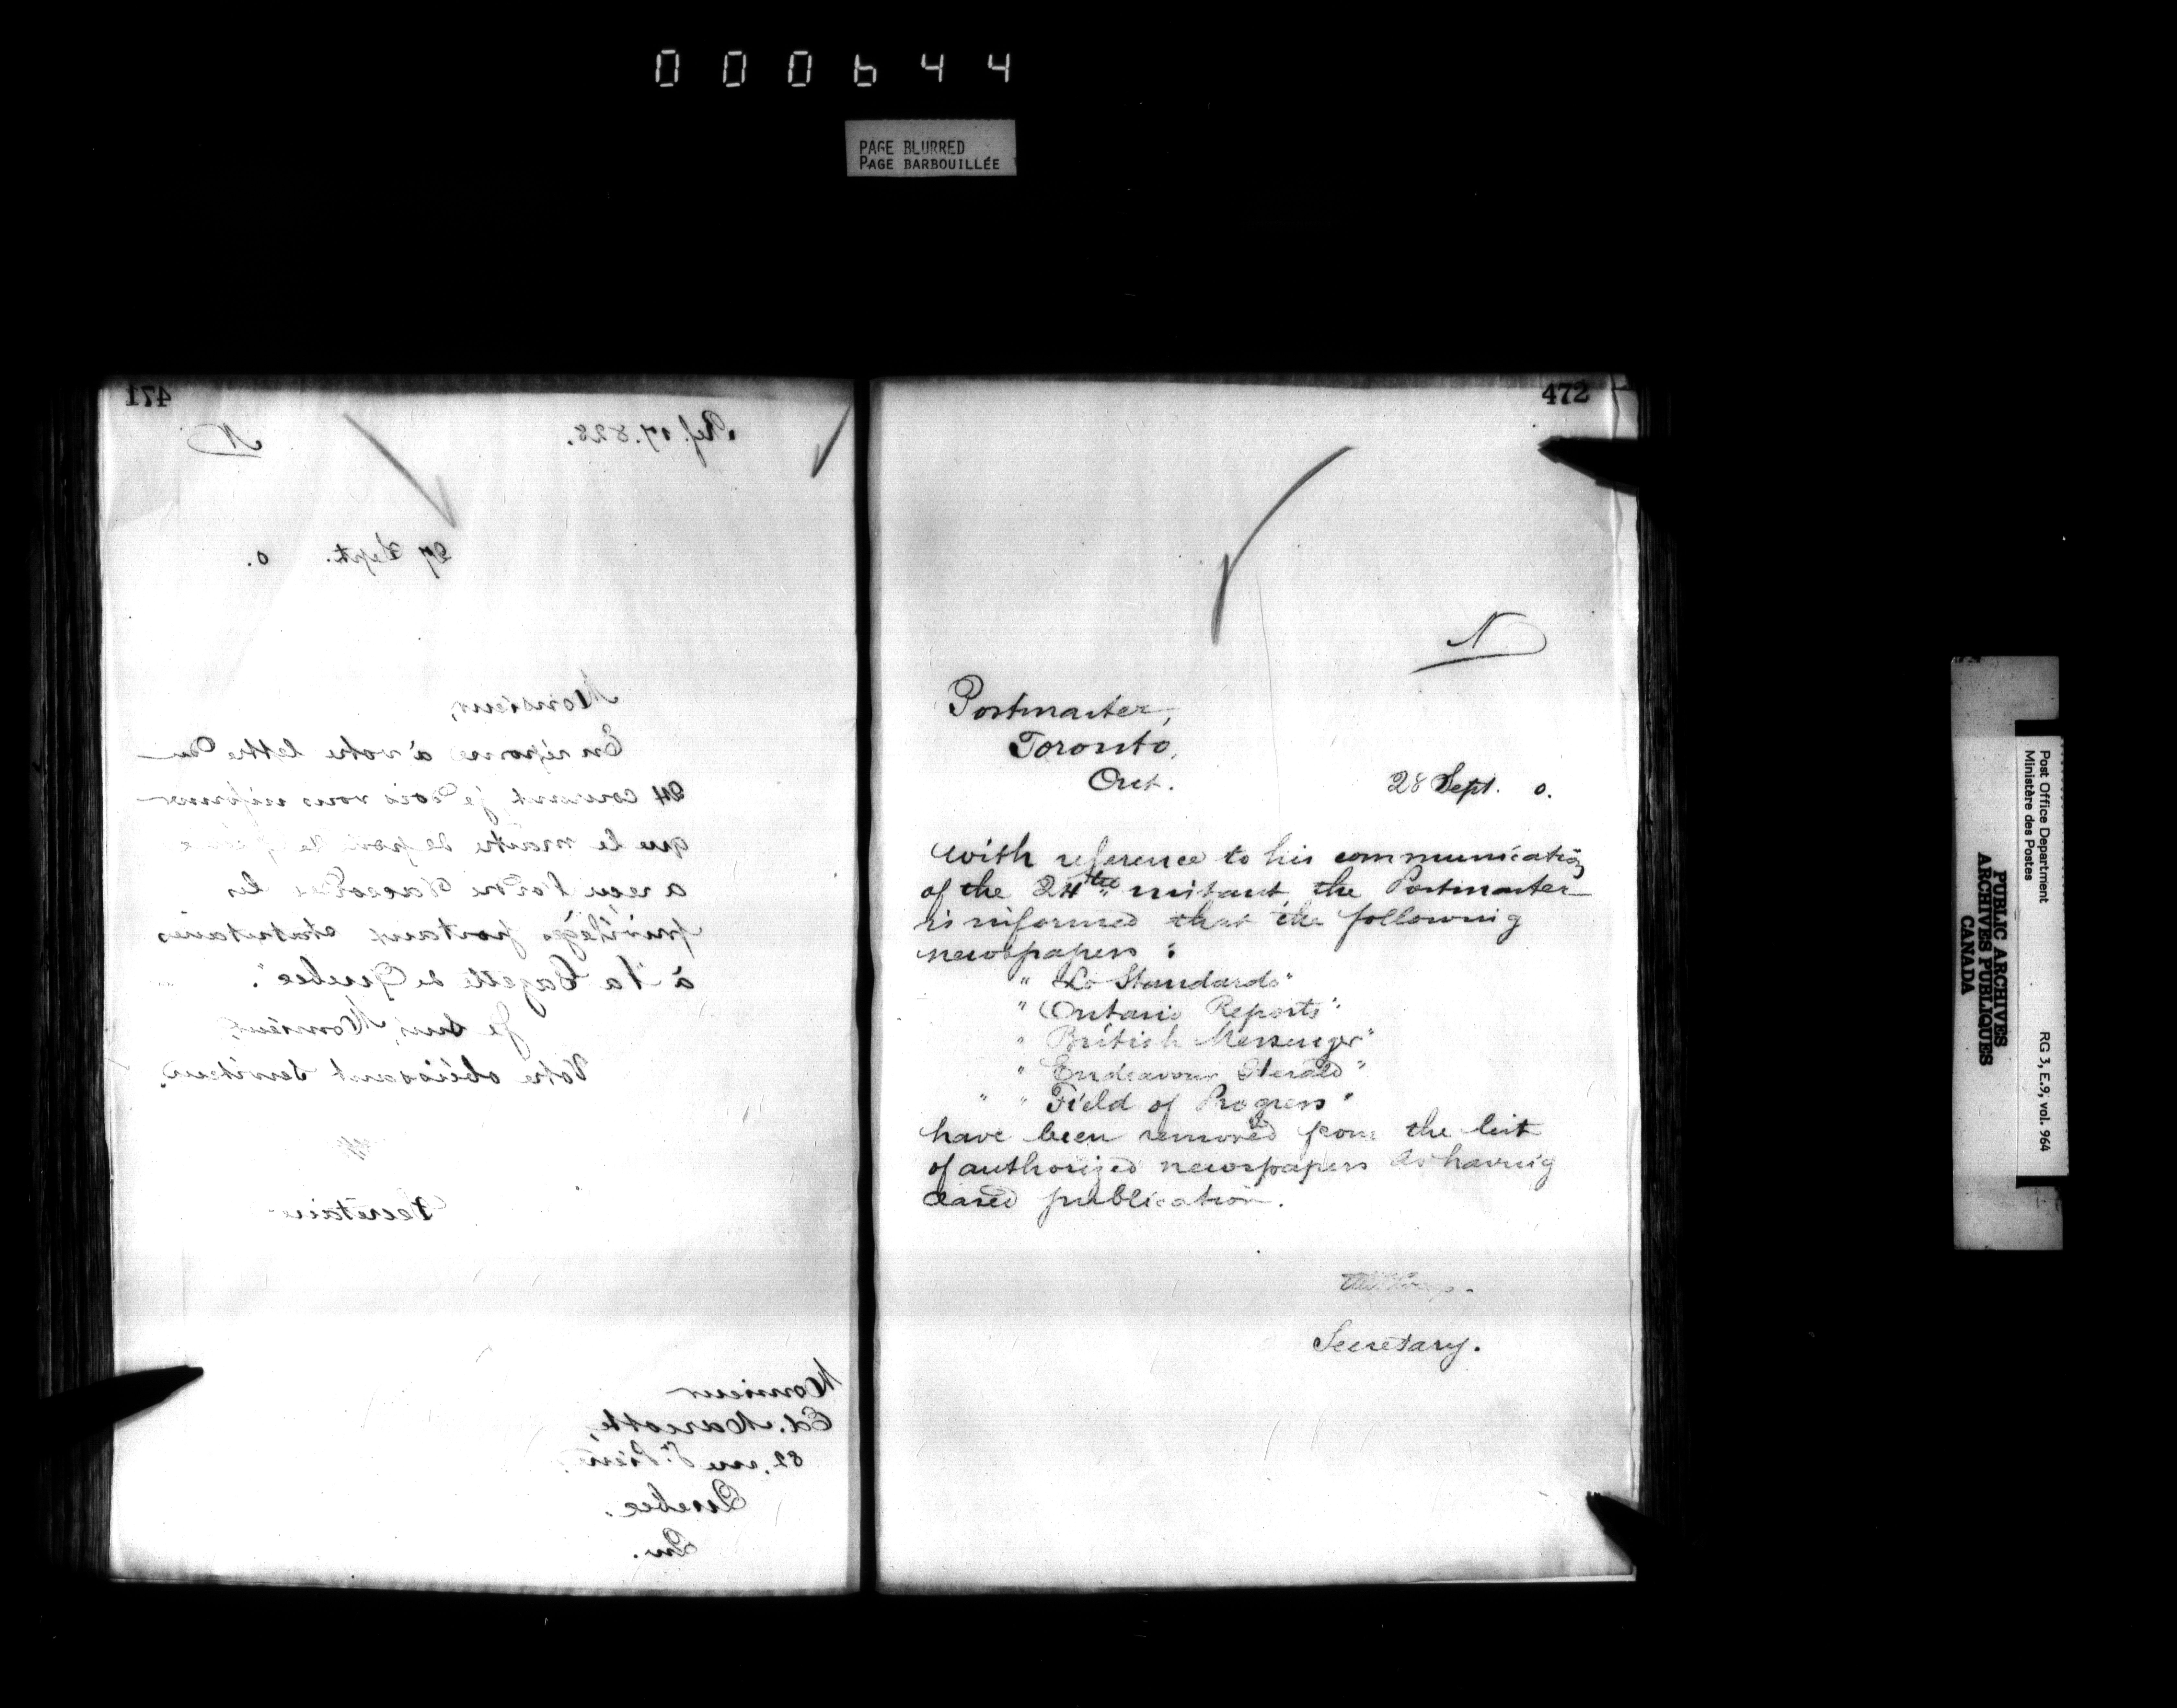 000644
PAGE BLURRED
PAGE BARBOUILLÉE
471
Ref. 17.828.
N
27 Sept. 0.
Monsieur,
En réponse à votre lettre du
24 courant je dois vous informer
que le maitre de poste de
a reçu l'ordre d'accorder les
privilèges postaux statutaires
à "la Gazette de Quebec".
Je suis, Monsieur,
Votre obéissant serviteur,
Secrétaire
Monsieur
Ed. Marcotte,
82, rue St. Pierre,
Quebec.
Que.
472
N
Postmaster,
Toronto,
Ont.
28 Sept. 0.
With reference to his communication
of the 24th instant, the Postmaster
is informed that the following
newspapers :
" Standards"
"Ontario Reports"
"British Messenger"
"Endeavour Herald"
" "Field of Progress"
have been removed from the list
of authorized newspapers as having
ceased publication.
Secretary.
Post Office Department
Ministère des Postes
RG 3, E.9, vol. 964
PUBLIC ARCHIVES
ARCHIVES PUBLIQUES
CANADA